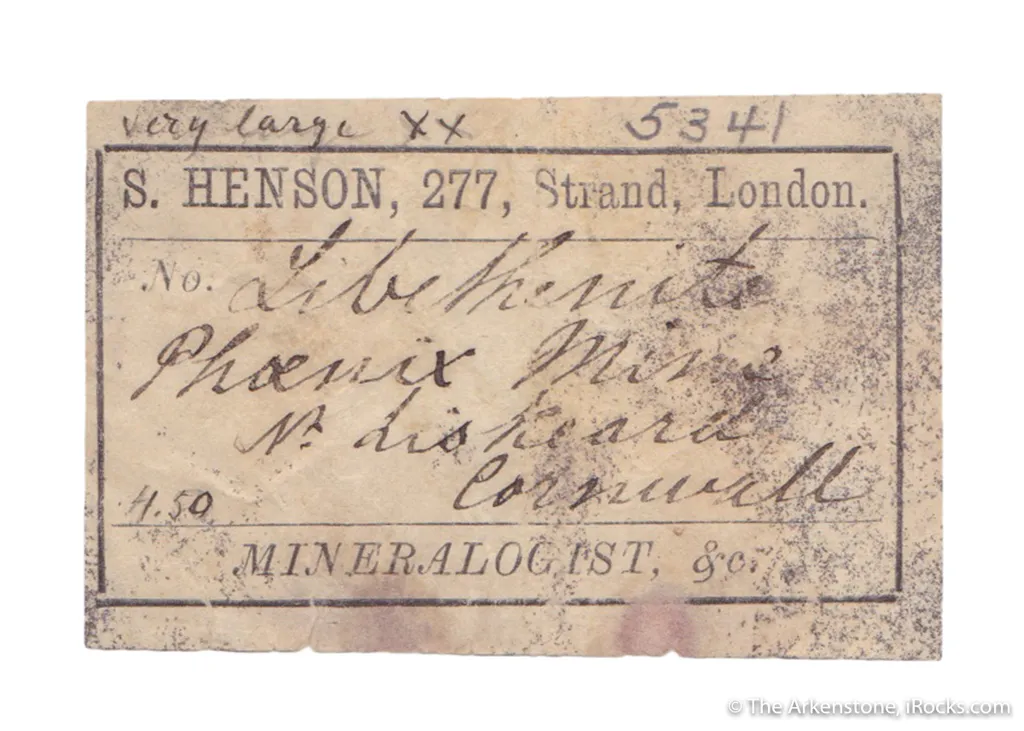 very large xx 5341
S. HENSON, 277, Strand, London.
No. Libethenite
Phœnix Mine
Nr Liskeard
Cornwall
4.50
MINERALOGIST, &c.
© The Arkenstone, iRocks.com